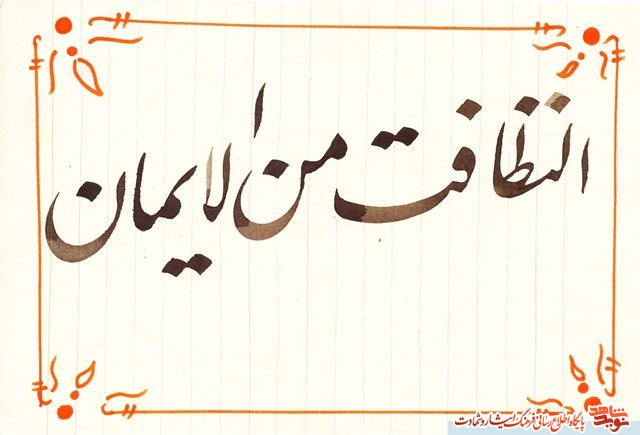 النظافت من الایمان
نوید شاهد
پایگاه اطلاع رسانی فرهنگ ایثار و شهادت